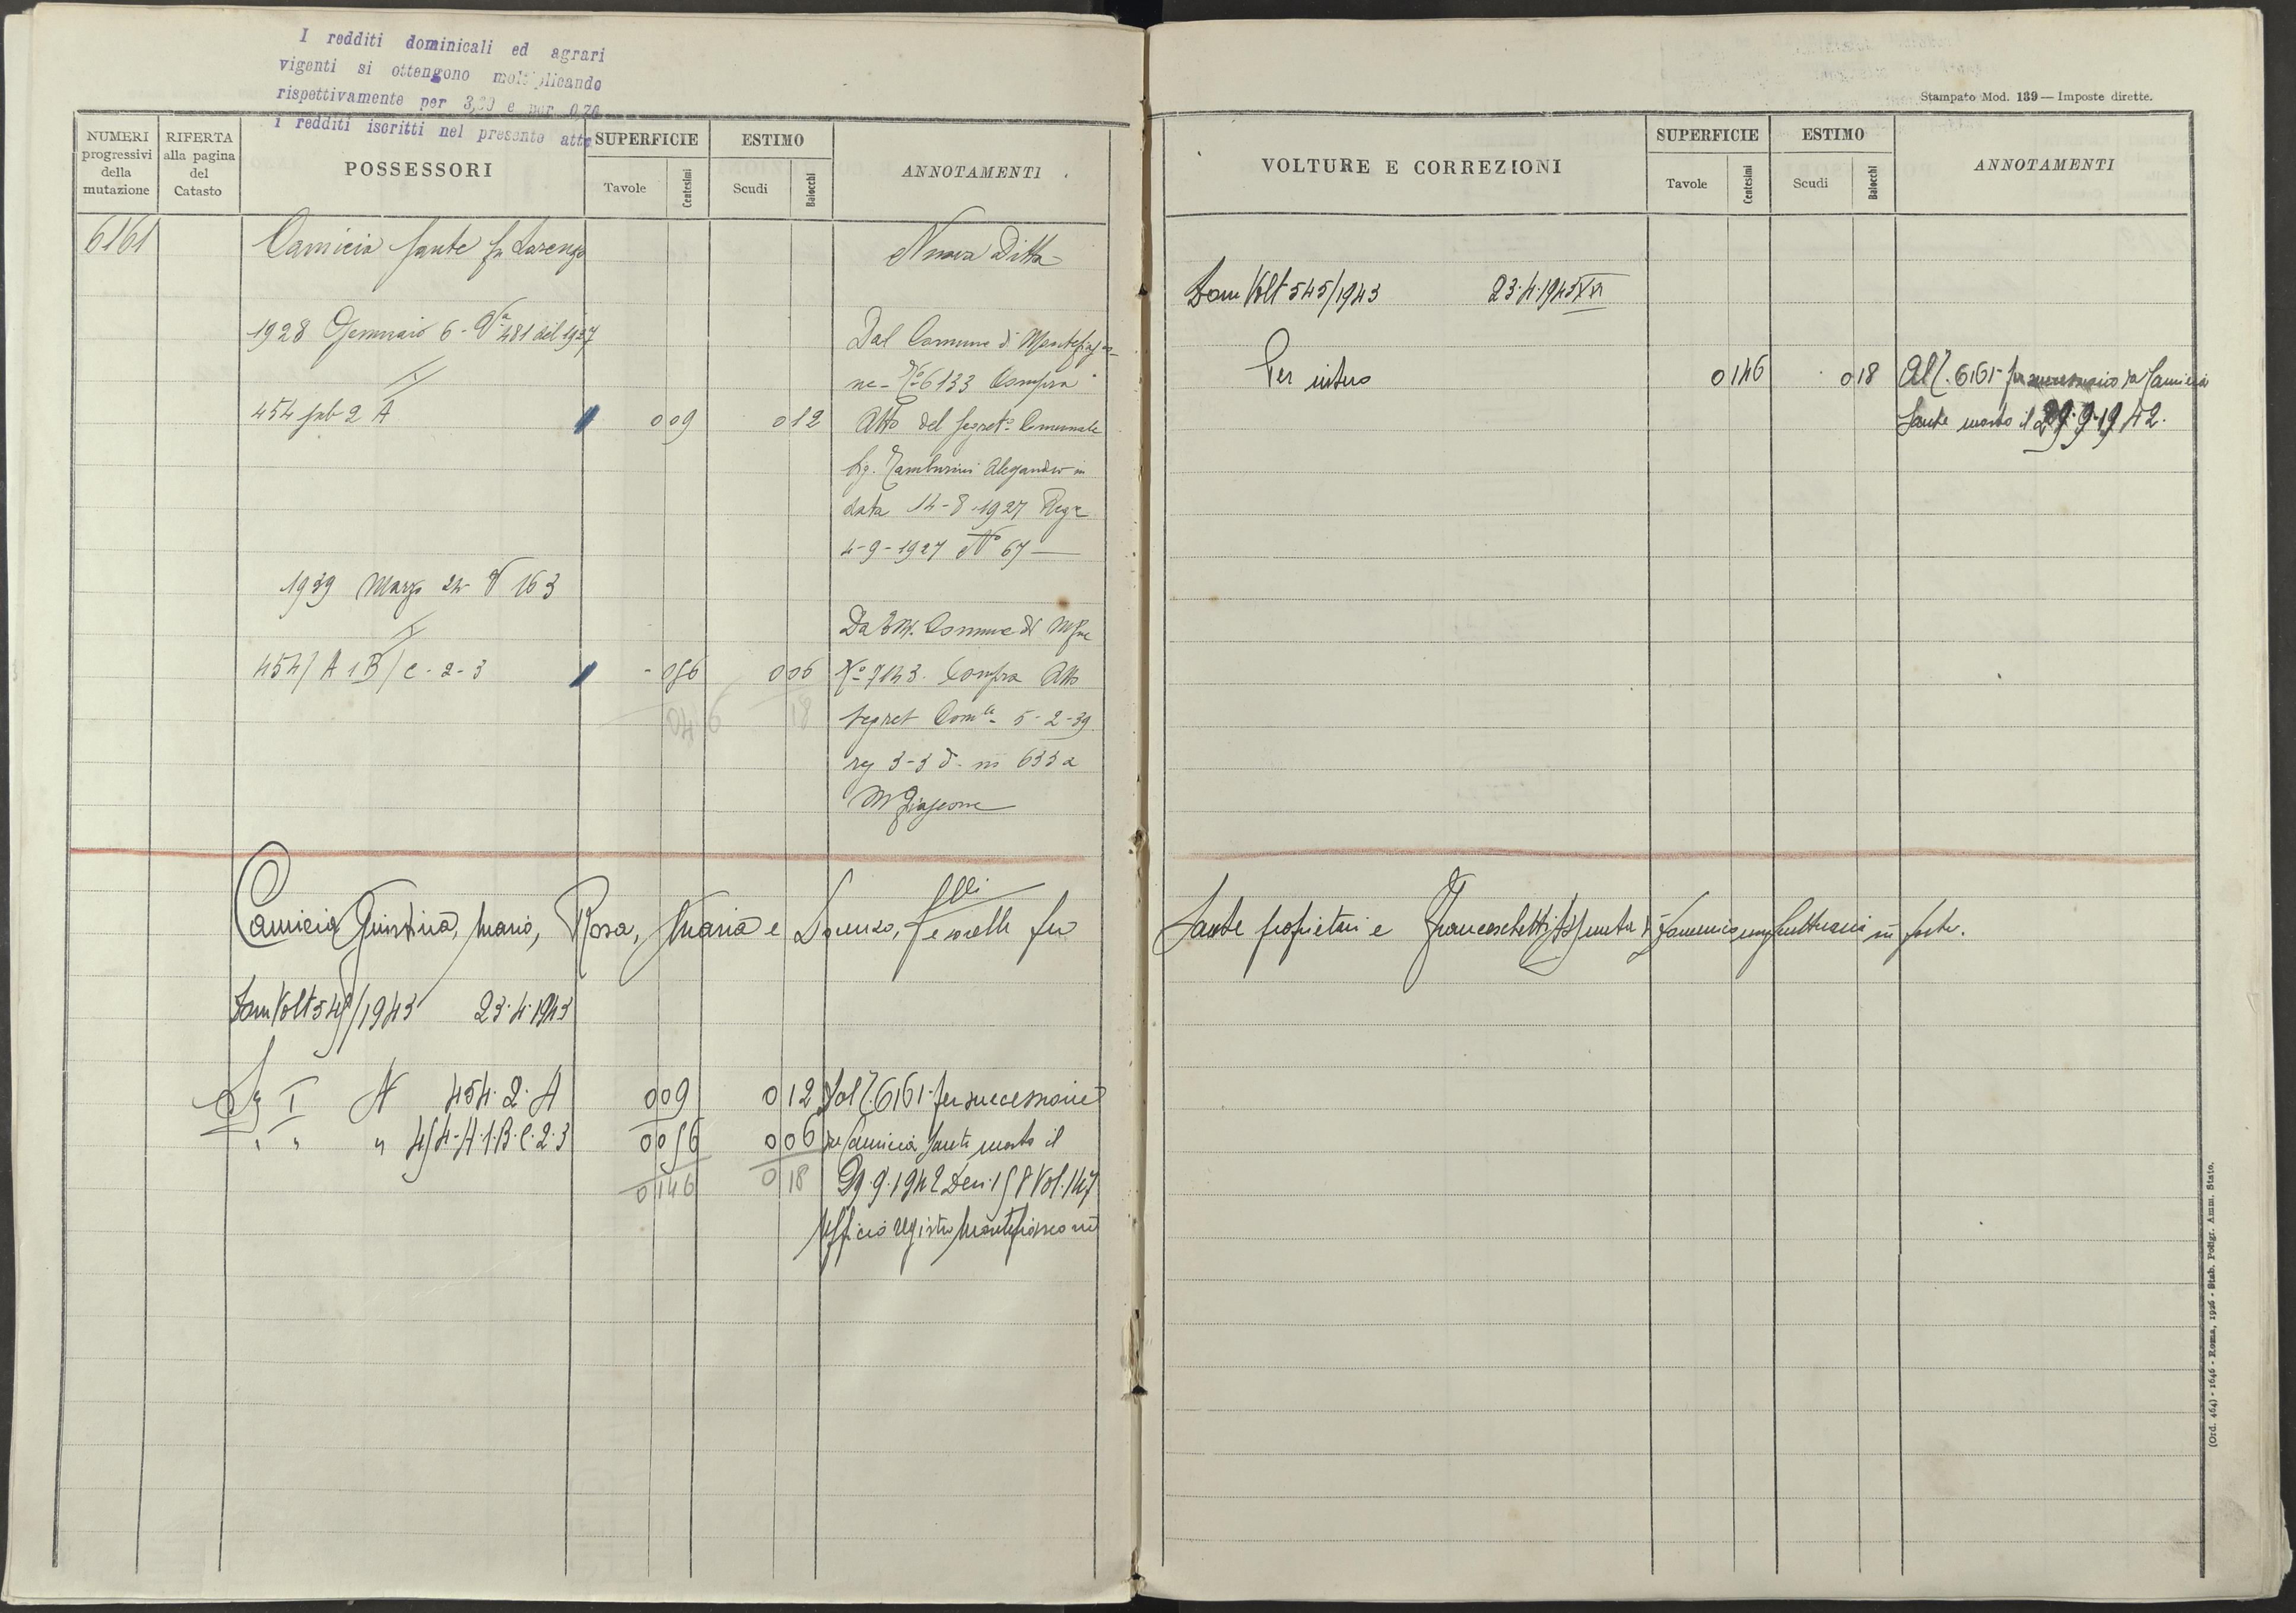 I redditi dominicali ed agrari
vigenti si ottengono moltiplicando
rispettivamente per e per 0,70
i redditi iscritti nel presente atto
NUMERI progressivi della mutazione
RIFERTA alla pagina del Catasto
POSSESSORI
SUPERFICIE
Tavole
Centesimi
ESTIMO
Scudi
Baiocchi
ANNOTAMENTI
6161
Camicia Sante fu Lorenzo
Nuova Ditta
1928 Gennaio 6 - Va 481 del 1927
Dal Comune di Montefiasco-
ne - No 6133 Compra
454 sub 2 A
0 09
0 12
Atto del Segreto Comunale
Sig. Tamburini in
data 14-8-1927 Rega
4-9-1927 No 67
1939 Marzo 24 V 163
Da Comune di
454/A 1 B/C-2-3
- 056
0 06
No 7143. Compra Atto
Segret Comle - 5-2-39
reg 3-3 633 a
046
18
Mfiascone
Camicia Giustina, Mario, Rosa, Maria e Lorenzo, flli e sorelle fu
Dom Volt 545/1943 23.4.1943
Sz I N 454.2.A
0 09
0 12
Dal 6161 per successione
" " " 454-A.1.B.C.2.3
0 056
0 06
Camicia Sante morto il
0 146
0 18
29.9.1942 Den. 158 Vol. 147
Ufficio registro Montefiascone
Stampato Mod. 139 — Imposte dirette.
VOLTURE E CORREZIONI
SUPERFICIE
Tavole
Centesimi
ESTIMO
Scudi
Baiocchi
ANNOTAMENTI
Dom Volt 545/1943 23.4.1943 XXI
Per intero
0 146
0 18
Al 6161 per successione da Camicia
Sante morto il 29.9.1942.
Sante proprietari e Franceschetti di Domenico usufruttuaria in parte.
(Ord. 464) - 1646 - Roma, 1926 - Stab. Poligr. Amm. Stato.